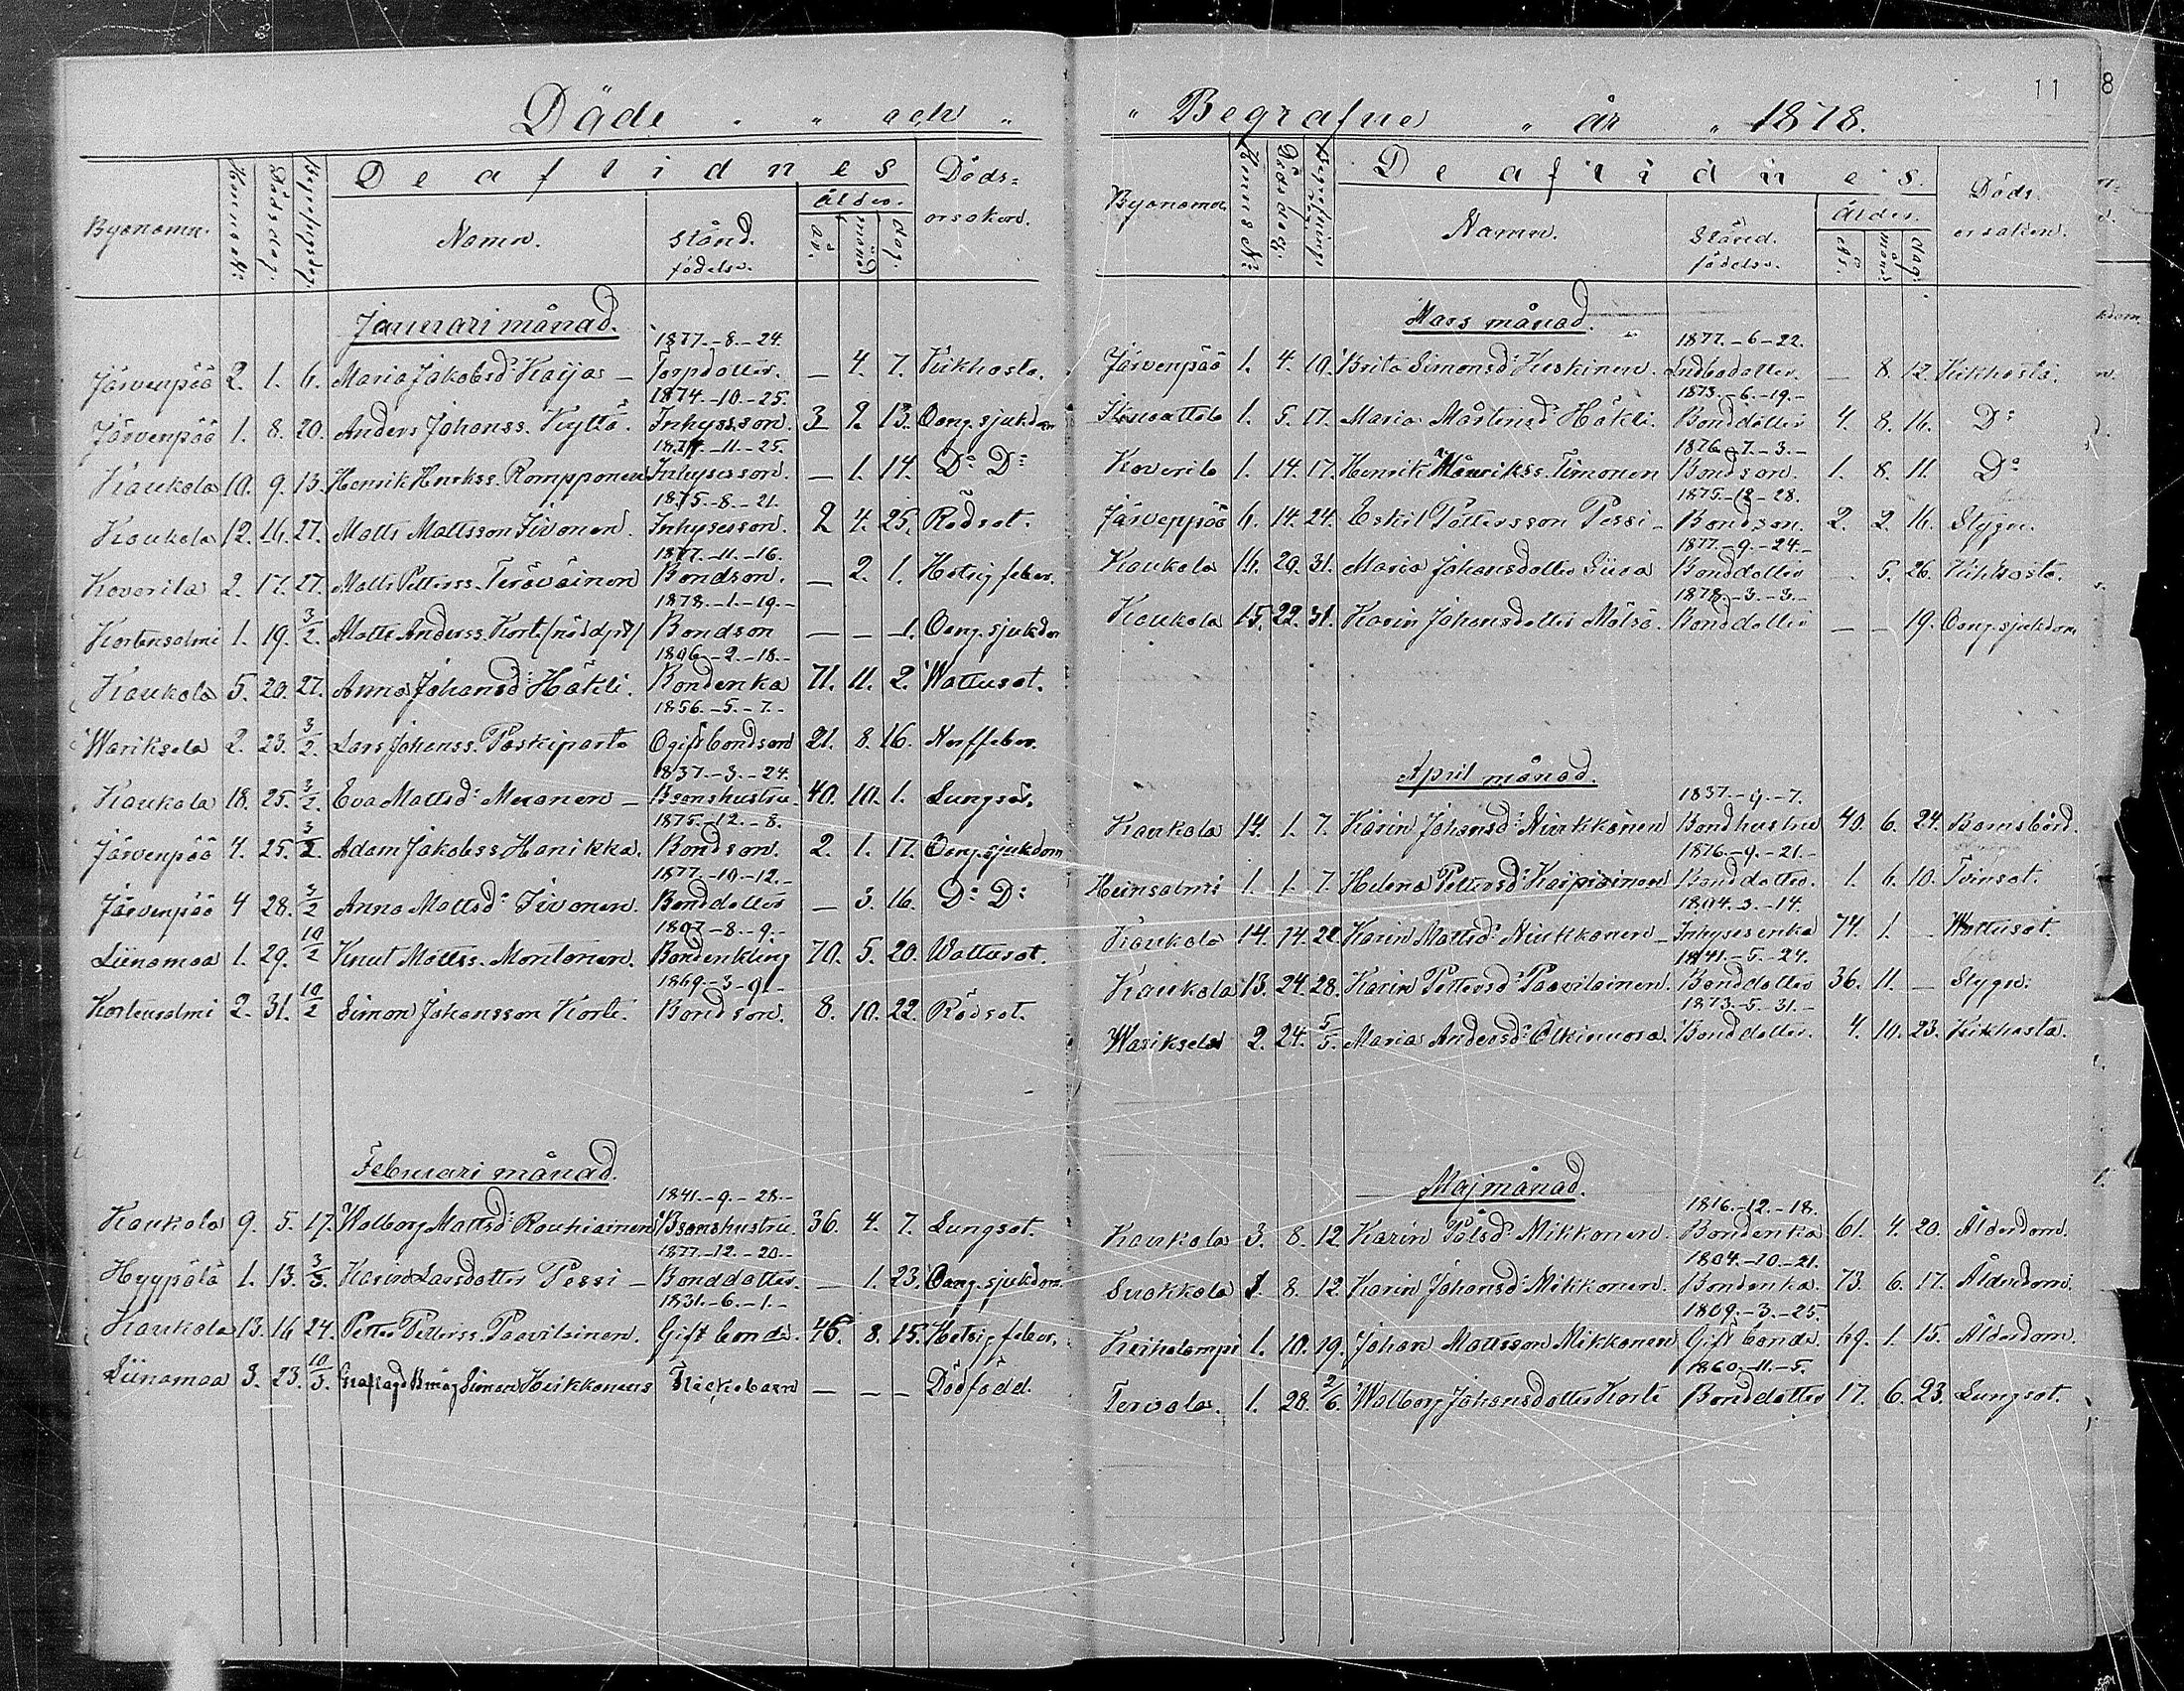 Döde " " och "
Byanamn. Hemms No: Dödsdag. Begrafngsdag. De aflidnes Döds=
Namn. Stånd. Ålder. orsaken.
födelse. år. månad dag.
Januari månad.
1877.-8.-24.
Järvenpää 2. 1. 6. Maria Jakobsd: Kaijas — Torpdotter. — 4. 7. Kikhosta.
1874.-10.-25.
Järvenpää 1. 8. 20. Anders Johanss. Kyttä. Inhysesson. 3 2 13. Oang. sjukdom
1877.-11.-25.
Kaukola 10. 9. 13. Henrik Henrikss. Rompponen Inhysesson. — 1. 14. D:o D:o
1875.-8.-21.
Kaukola 12. 16. 27. Matts Mattsson Iivonen. Inhysesson. 2 4. 25. Rödsot.
1877.-11.-16.
Koverila 2. 17. 27. Matts Petterss. Teräväinen Bondson. — 2. 1. Hetsig feber.
1878.-1.-19.-
Kortensalmi 1. 19. 3/2. Matts Anderss. Korte /nöddpt/ Bondson — — 1. Oang. sjukdom
1806.-2.-18.-
Kaukola 5. 20. 27. Anna Johansd: Häkli. Bondenka 71. 11. 2. Wattusot.
1856.-5.-7.-
Warikselä 2. 23. 3/2. Lars Johanss. Paskiparta Ogift bondson 21. 8. 16. Nerffeber.
1837.-3.-24.
Kaukola 18. 25. 3/2. Eva Mattsd: Meronen — Bsonshustru. 40. 10. 1. Lungsot.
1875.-12.-8.
Järvenpää 4. 25. 3/2. Adam Jakobss. Hanikka. Bondson. 2. 1. 17. Oang. sjukdom
1877.-10.-12.-
Järvenpää 4 28. 3/2 Anna Mattsd: Iivonen. Bonddotter — 3. 16. D:o D:o
1807.-8.-9.-
Liinamaa 1. 29. 10/2 Knut Mattss. Montonen. Bondenkling 70. 5. 20. Wattusot.
1869.-3.-9.-
Kortensalmi 2. 31. 10/2 Simon Johansson Korte. Bondson. 8. 10. 22. Rödsot.
Februari månad.
1841.-9.-28.-
Kaukola 9. 5. 17. Walborg Mattsd: Rouhiainen Bsonshustru. 36. 4. 7. Lungsot.
1877.-12.-20.-
Hyypölä 1. 13. 3/3. Karin Larsdotter Pessi — Bonddotter. — 1. 23. Oang. sjukdom.
1831.-6.-1.-
Kaukola 13. 16 24. Petter Petterss. Paavilainen. Gift bonde. 46. 8. 15. Hetsig feber.
Liinamaa 3. 23. 10/3. Simon Heikkonens Flickebarn — — — Dödfödd.
11
" Begrafne " år " 1878.
Byanamn. Hemms No: Dödsdag. Begrafnings dag. De aflidnes. Döds.
Namn. Stånd. Ålder. orsaken.
födelse. år. månad dag.
Mars månad.
1877.-6-22.
Järvenpää 1. 4. 10. Brita Simonsd: Heskinen. Indbodotter. — 8. 12. Kikhosta.
1873.-6.-19.-
1. 5. 17. Maria Mårtensd: Häkli. Bonddotter 4. 8. 16. D:o
1876.-7.-3.-
Koverila 1. 14. 17. Henrik Henrikss. Timonen Bondson. 1. 8. 11. D:o
1875.-12.-28.
Järvenpää 6. 14. 24. Eskil Pettersson Pessi — Bondson. 2. 2. 16. Stygn.
1877.-9.-24.-
Kaukola 14. 20. 31. Maria Johansdotter Siisa Bonddotter — 5. 26. Kikhosta.
1878.-3.-3.-
Kaukola 15. 22. 31. Karin Johansdotter Mälsä. Bonddotter — — 19. Oang. sjukdom
April månad.
1837.-9.-7.
Kaukola 14. 1. 7. Karin Johansd: Niukkanen Bondhustru 40. 6. 24. Barnsbörd.
1876.-9.-21.-
Heinsalmi 1. 1. 7. Helena Pettersd: Karpiainen Bonddotter. 1. 6. 10. Tvinsot.
1804.3.-14.
Kaukola 14. 14. 22. Karin Mattsd: Niukkanen — Inhysesenka 74. 1. — Wattusot.
1841.-5.-24.
Kaukola 13. 24. 28. Karin Pettersd: Paavilainen. Bonddotter 36. 11. — Stygn.
1873.-5.-31.-
Warikselä 2. 24. 5/5. Maria Andersd: Elkinuora. Bonddotter. 4. 10. 23. Kikhosta.
Maj månad.
1816.-12.-18.
Kaukola 3. 8. 12. Karin Pålsd: Mikkonen. Bondenka 61. 4. 20. Ålderdom.
1804.-10.-21.
Suokkola 1. 8. 12. Karin Johansd: Mikkonen. Bondenka. 73. 6. 17. Ålderdom.
1809.-3.-25.
Keikolampi 1. 10. 19. Johan Mattsson Mikkonen Gift bonde. 69. 1. 15. Ålderdom.
1860.-11.-5.
Tervola. 1. 28. 2/6. Walborg Johansdotter Korte Bonddotter 17. 6. 23. Lungsot.